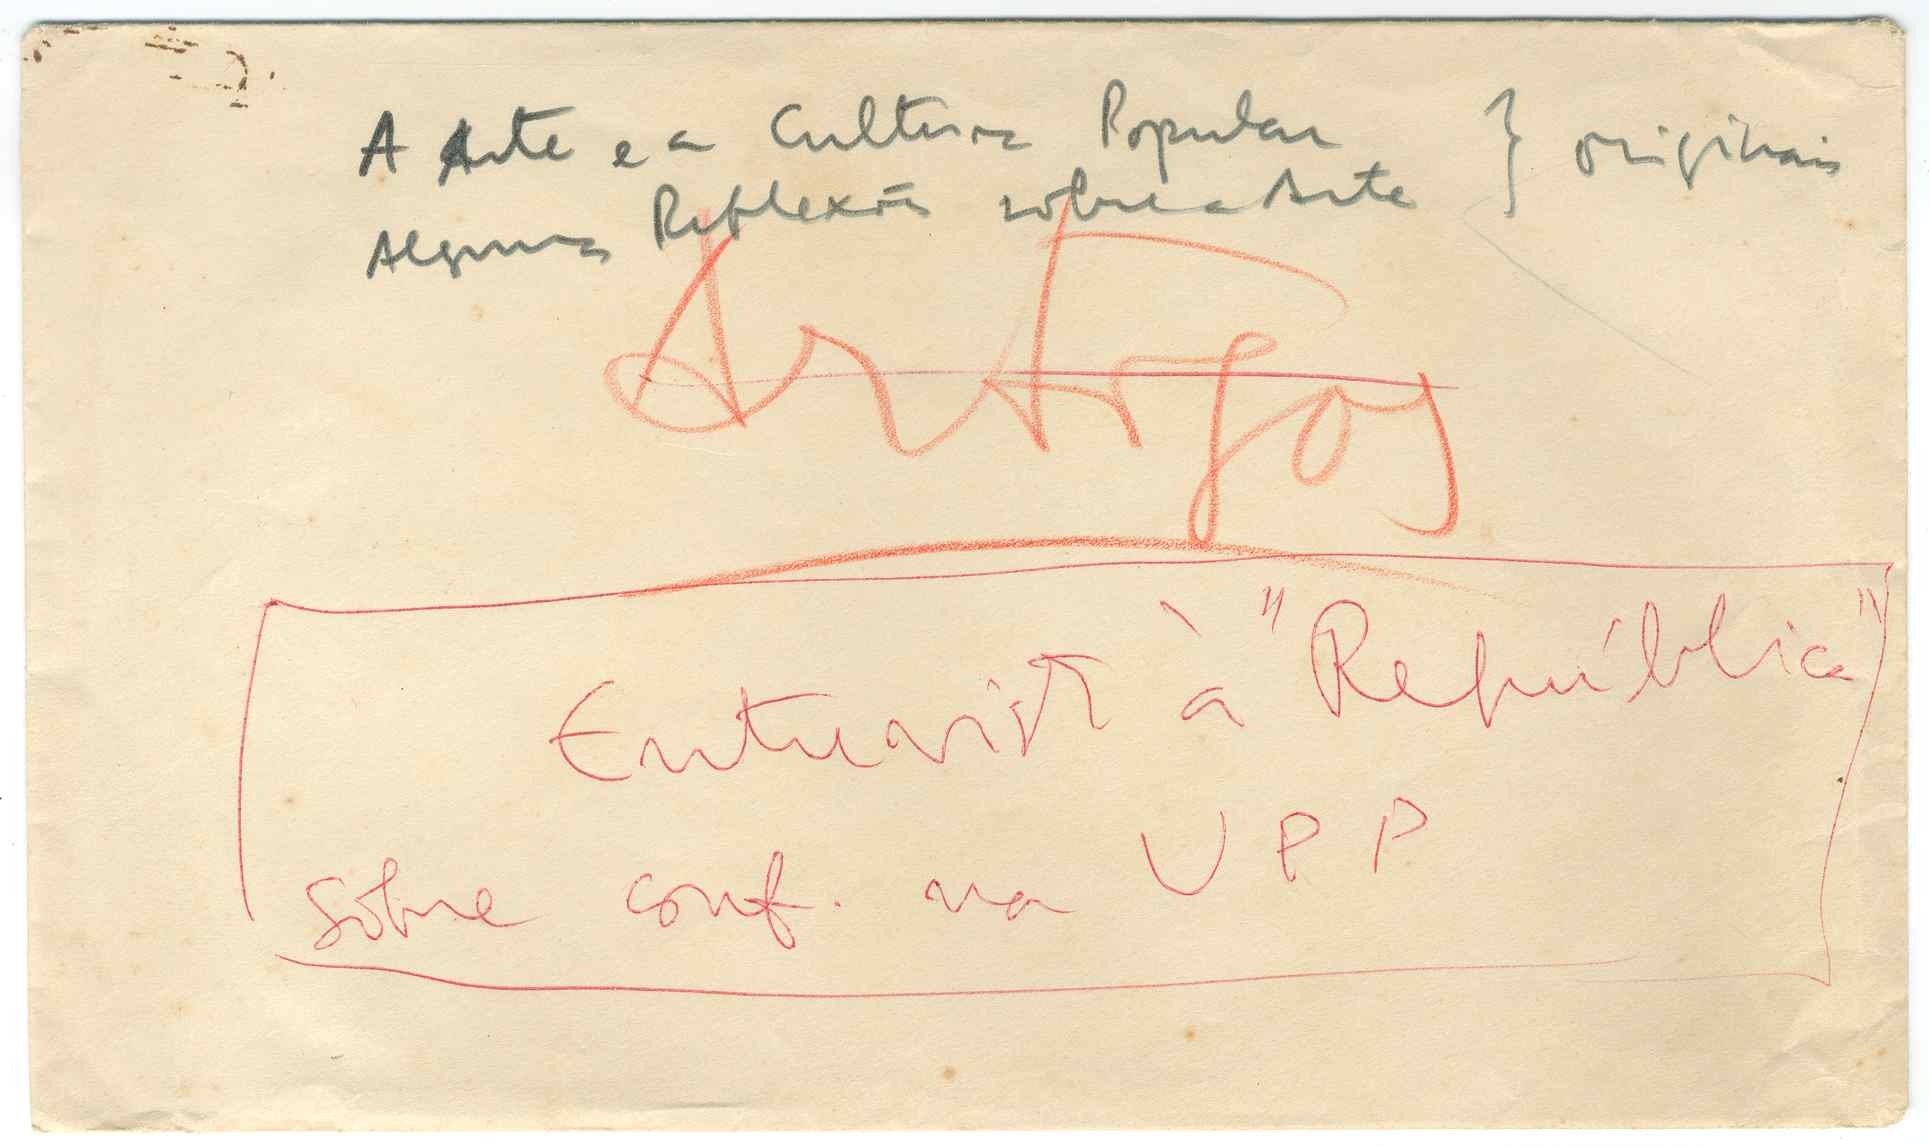 A Arte e a Cultura Popular } originais
Algumas Reflexões sobre a Arte
Artigos
Entrevista à "República"
sobre conf. na UPP